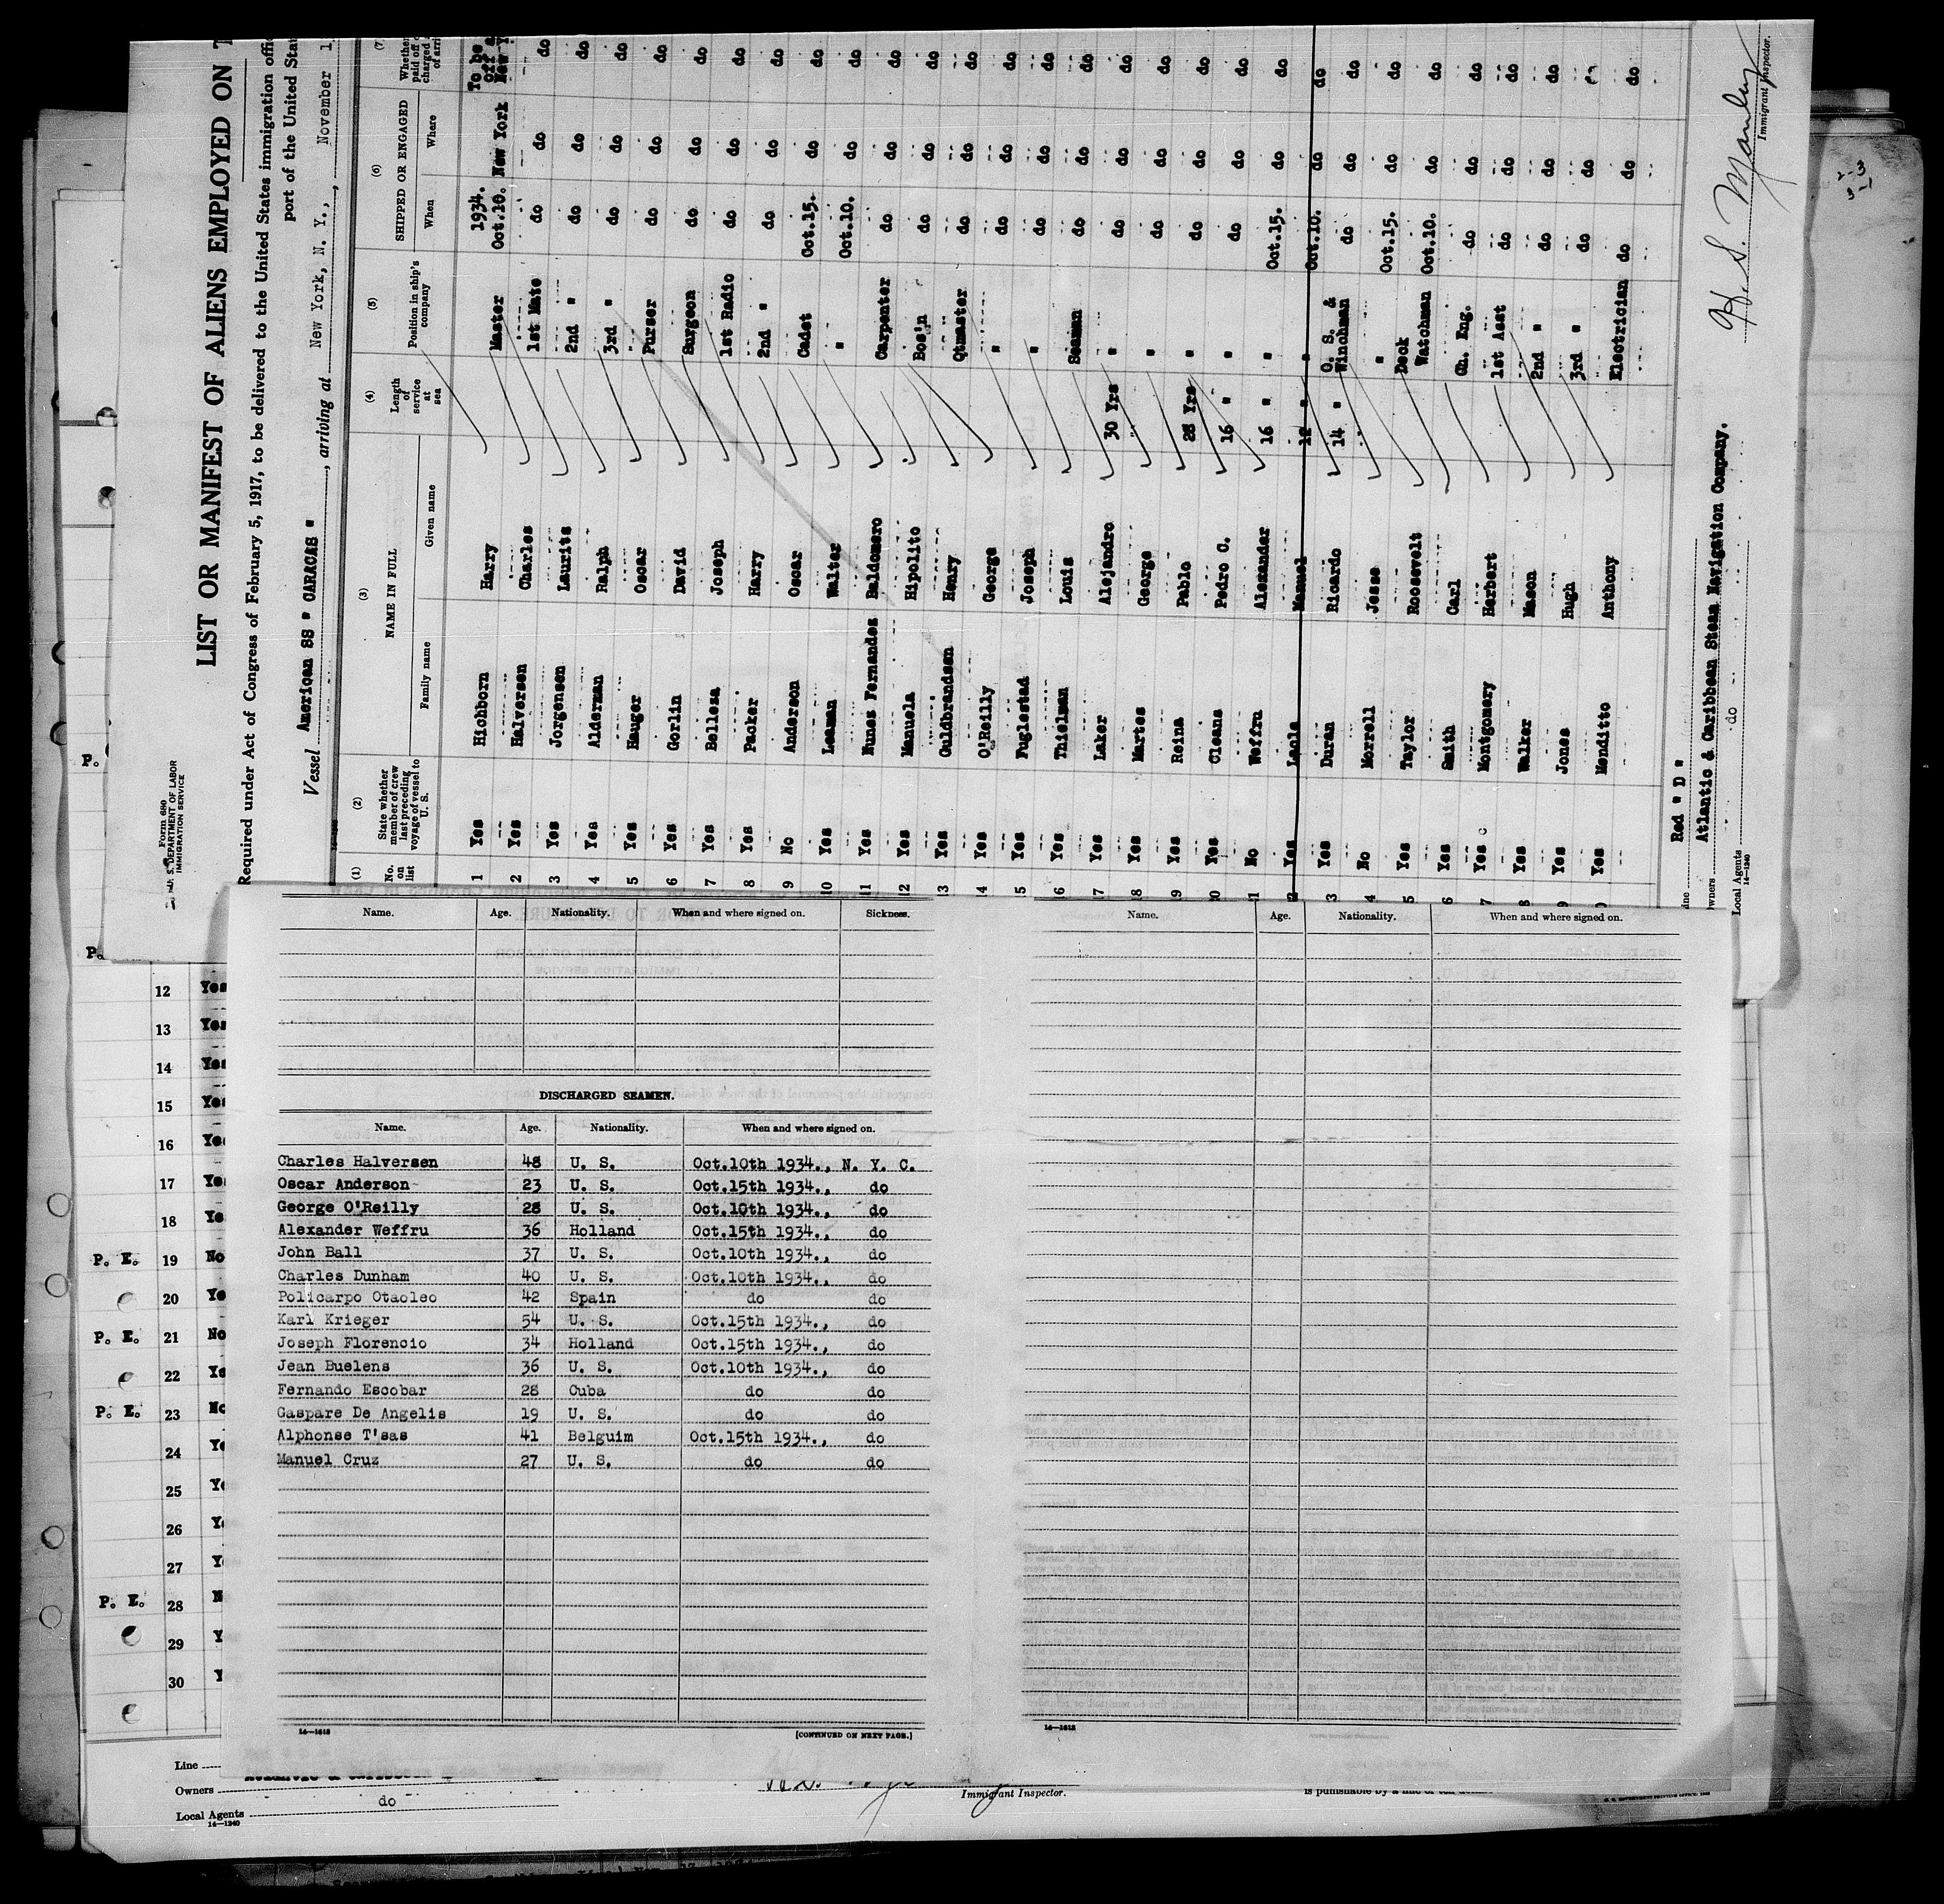 Form 680
U. S. DEPARTMENT OF LABOR
IMMIGRATION SERVICE
LIST OR MANIFEST OF ALIENS EMPLOYED ON
Required under Act of Congress of February 5, 1917, to be delivered to the United States immigration
port of the United
Vessel American SS " CARACAS ", arriving at New York, N. Y., November
(1) (2) (3) (4) (5) (6) (7)
No. on list State whether member of crew last preceding voyage of vessel to U. S. NAME IN FULL Family name Given name Length of service at sea Position in ship's company SHIPPED OR ENGAGED When Where
1 Yes Hichborn Harry Master 1934. Oct.10. New York To be
2 Yes Halversen Charles 1st Mate do do do
3 Yes Jorgensen Laurits 2nd " do do do
4 Yes Alderman Ralph 3rd " do do do
5 Yes Hauger Oscar Purser do do do
6 Yes Gorlin David Surgeon do do do
7 Yes Bellesa Joseph 1st Radio do do do
8 Yes Packer Harry 2nd " do do do
9 No Anderson Oscar Cadet Oct.15. do do
10 Yes Leaman Walter " Oct.10. do do
11 Yes Nunes Fernandes Baldomero Carpenter do do do
12 Yes Manuela Hipolito Bos'n do do do
13 Yes Guldbrandsen Henry Qtmaster do do do
14 Yes O'Reilly George " do do do
15 Yes Fuglestad Joseph " do do do
16 Yes Thielman Louis Seaman do do do
17 Yes Laker Alejandro 30 Yrs " do do do
18 Yes Martes George " do do do
19 Yes Reina Pablo 28 Yrs " do do do
20 Yes Cleans Pedro C. 16 " " do do do
21 No Weffru Alexander 16 " " Oct.15. do do
22 Yes Manuel 12 " " Oct.10. do do
23 Yes Duran Ricardo 14 " O. S. & Winchman do do do
24 No Morrell Jesse " Oct.15. do do
25 Yes Taylor Roosevelt Deck Watchman Oct.10. do do
26 Yes Smith Carl Ch. Eng. do do do
27 Yes Montgomery Herbert 1st Asst do do do
28 Yes Walker Mason 2nd " do do do
29 Yes Jones Hugh 3rd " do do
30 Yes Menditto Anthony Electrician do do do
Red " D "
Owners Atlantic & Caribbean Steam Navigation Company.
Local Agents do
14—1240
H. S. Manley
Immigrant Inspector.
Name. Age. Nationality. When and where signed on. Sickness.
DISCHARGED SEAMEN.
Name. Age. Nationality. When and where signed on.
Charles Halversen 48 U. S. Oct.10th 1934., N. Y. C.
Oscar Anderson 23 U. S. Oct.15th 1934., do
George O'Reilly 28 U. S. Oct.10th 1934., do
Alexander Weffru 36 Holland Oct.15th 1934., do
John Ball 37 U. S. Oct.10th 1934., do
Charles Dunham 40 U. S. Oct.10th 1934., do
Policarpo Otaoleo 42 Spain do do
Karl Krieger 54 U. S. Oct.15th 1934., do
Joseph Florencio 34 Holland Oct.15th 1934., do
Jean Buelens 36 U. S. Oct.10th 1934., do
Fernando Escobar 28 Cuba do do
Gaspare De Angelis 19 U. S. do do
Alphonse T'sas 41 Belguim Oct.15th 1934., do
Manuel Cruz 27 U. S. do do
14—1618
[CONTINUED ON NEXT PAGE.]
Name. Age. Nationality. When and where signed on.
14—1618
12 Yes
13 Yes
14 Yes
15 Yes
16
17
18
P. E. 19 No
20
P. E. 21 No
22
P. E. 23
24
25
26
27
P. E. 28
29
30
Line
Owners
Local Agents do
14—1240
Immigrant Inspector.
is punishable by a fine of